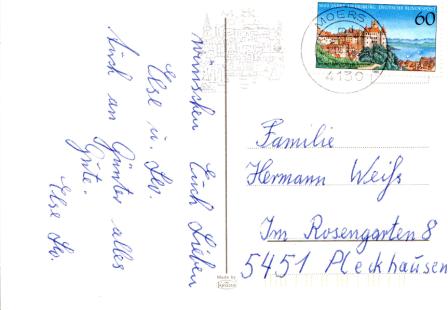 wünschen Euch Lieben
Else u. Leo.
Auch an Günter alles
Gute.
Else Leo.
1000 JAHRE MEERSBURG DEUTSCHE BUNDESPOST
60
MOERS
4130
Familie
Hermann Weihs
Im Rosengarten 8
5451 Pleckhausen
Made by
KRÜGER